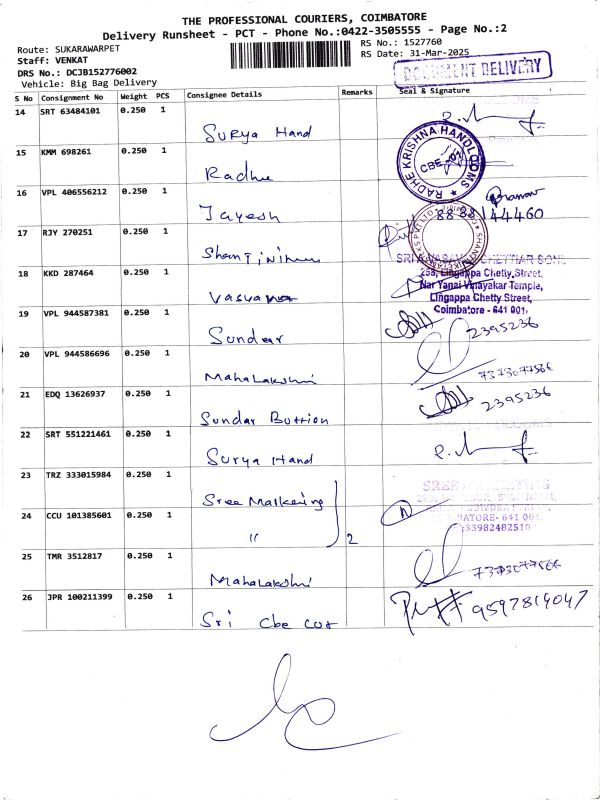 THE PROFESSIONAL COURIERS, COIMBATORE
Delivery Runsheet - PCT - Phone No.:0422-3505555 - Page No.:2
Route: SUKARAWARPET
RS No.: 1527760
Staff: VENKAT
RS Date: 31-Mar-2025
DRS No.: DCJB152776002
DOCUMENT DELIVERY
Vehicle: Big Bag Delivery
S No Consignment No Weight PCS Consignee Details Remarks Seal & Signature
14 SRT 63484101 0.250 1
Surya Hand
15 KMM 698261 0.250 1
Radhe
RADHE KRISHNA HANDLOOMS
CBE-01
16 VPL 406556212 0.250 1
Jayesh
8838144460
17 RJY 270251 0.250 1
18 KKD 287464 0.250 1
258, Lingappa Chetty Street,
Nar Yanai Vinayakar Temple,
Lingappa Chetty Street,
Coimbatore - 641 001.
19 VPL 944587381 0.250 1
Sundar
2395236
20 VPL 944586696 0.250 1
Mahalakshmi
7373077566
21 EDQ 13626937 0.250 1
Sundar Buttion
2395236
22 SRT 551221461 0.250 1
Surya Hand
23 TRZ 333015984 0.250 1
Sree Marketing
24 CCU 101385601 0.250 1
"
2
25 TMR 3512817 0.250 1
Mahalakshmi
7373077566
26 JPR 100211399 0.250 1
Sri Cbe cut
9597819047